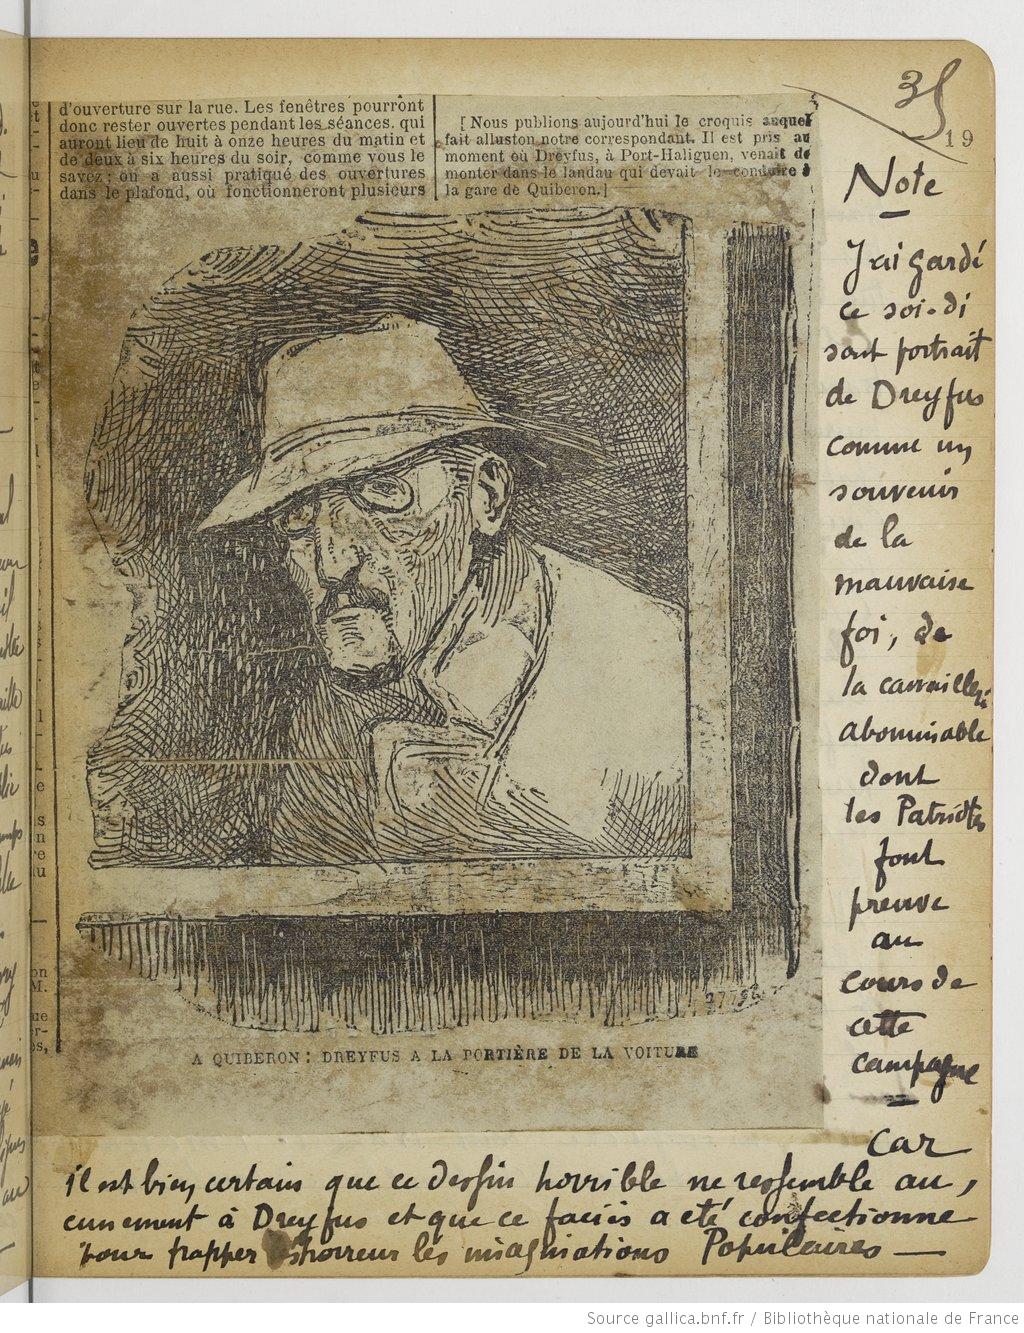 35
19
d'ouverture sur la rue. Les fenêtres pourront
donc rester ouvertes pendant les séances. qui
auront lieu de huit à onze heures du matin et
de deux à six heures du soir, comme vous le
savez ; on a aussi pratiqué des ouvertures
dans le plafond, où fonctionneront plusieurs
[Nous publions aujourd'hui le croquis auquel
fait allusion notre correspondant. Il est pris au
moment où Dreyfus, à Port-Haliguen, venait de
monter dans le landau qui devait le conduire à
la gare de Quiberon.]
A QUIBERON : DREYFUS A LA PORTIÈRE DE LA VOITURE
Note
J'ai gardé
ce soi-di
sant portrait
de Dreyfus
comme un
souvenir
de la
mauvaise
foi, de
la canaillerie
abominable
dont
les Patriotes
font
preuve
au
cours de
cette
campagne
car
il est bien certain que ce dessin horrible ne ressemble au,
cunement à Dreyfus et que ce faciès a été confectionné
pour frapper d'horreur les imaginations Populaires —
Source gallica.bnf.fr / Bibliothèque nationale de France